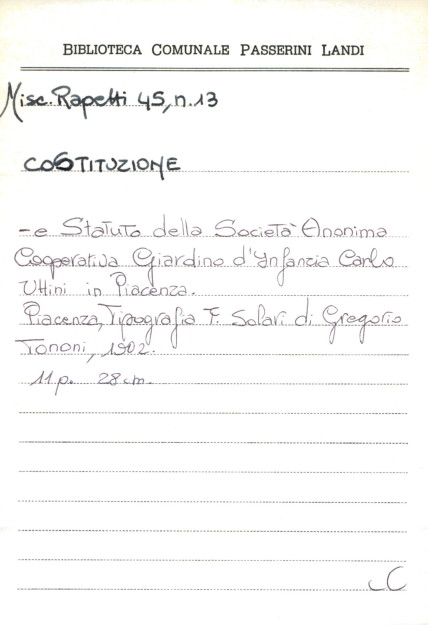 BIBLIOTECA COMUNALE PASSERINI LANDI
Misc. Rapetti 45, n. 13
COSTITUZIONE
- e Statuto della Società Anonima
Cooperativa Giardino d'Infanzia Carlo
Uttini in Piacenza.
Piacenza, Tipografia F. Solari di Gregorio
Tononi, 1902.
11 p. 28 cm.
C